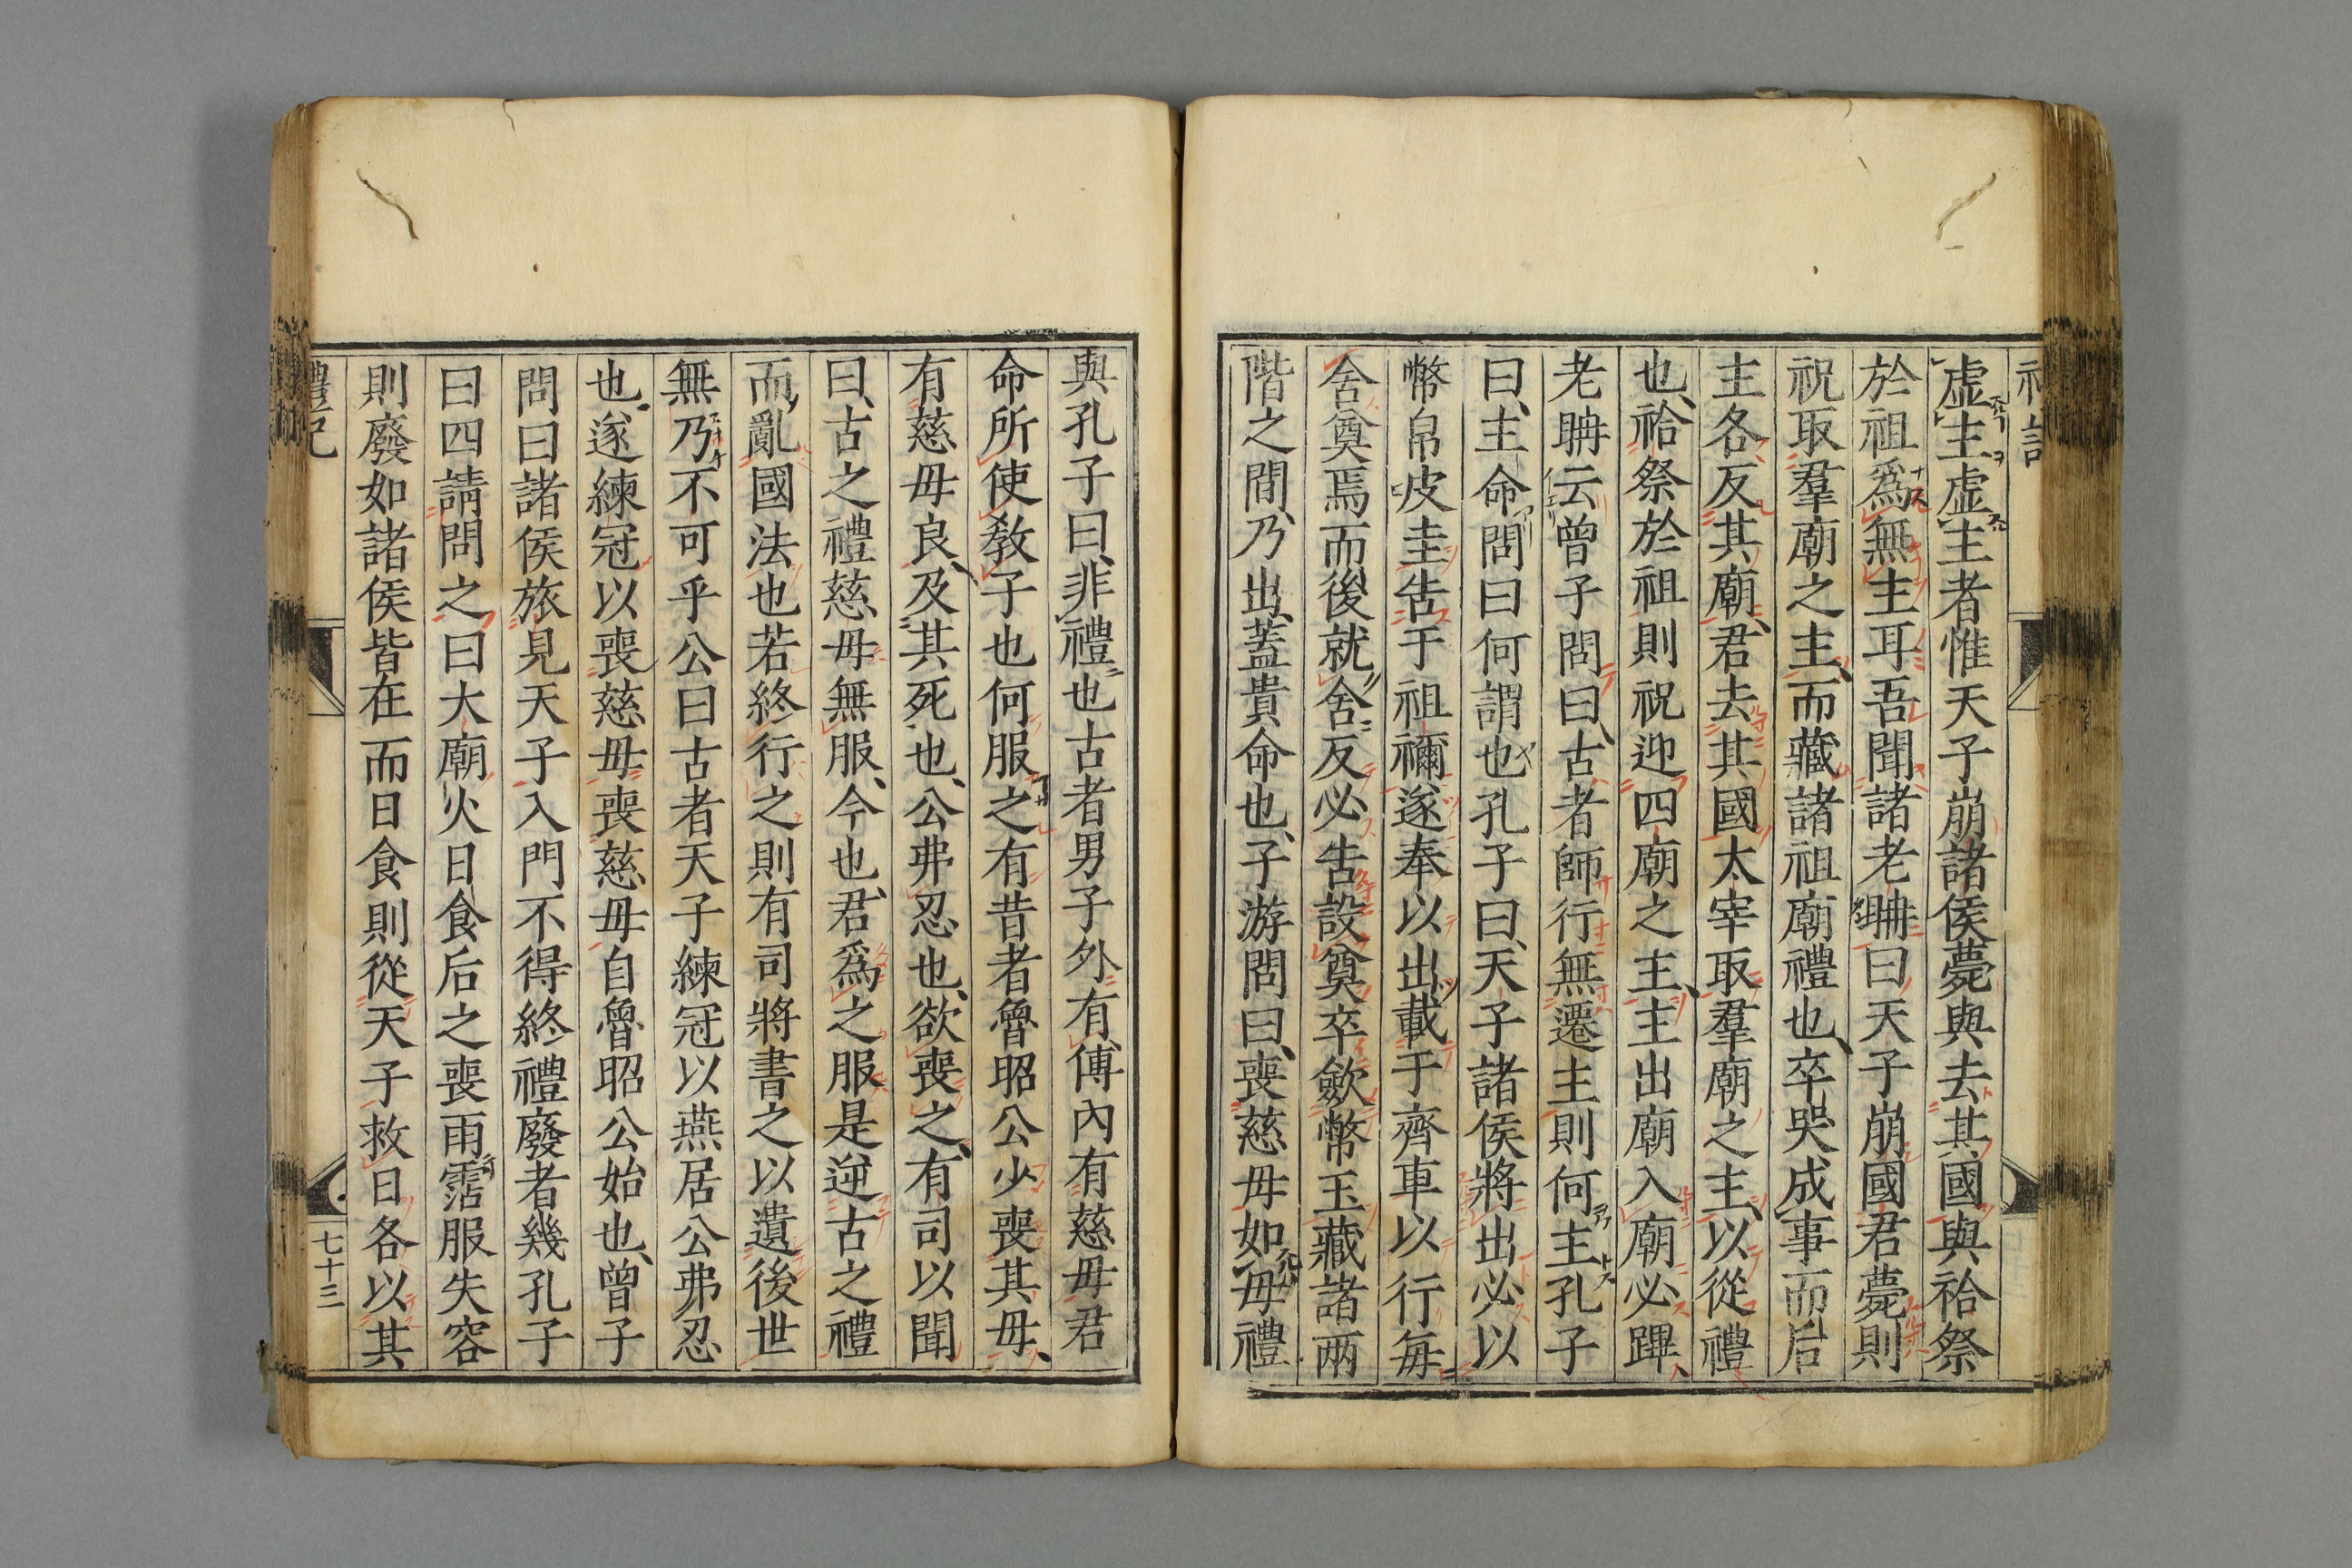 虛主虛主者惟天子崩諸侯薨與去其國與祫祭
於祖爲無主耳吾聞諸老聃曰天子崩國君薨則
祝取羣廟之主而藏諸祖廟禮也卒哭成事而后
主各反其廟君去其國太宰取羣廟之主以從禮
也祫祭於祖則祝迎四廟之主主出廟入廟必蹕
老聃云曾子問曰古者師行無遷主則何主孔子
曰主命問曰何謂也孔子曰天子諸侯將出必以
幣帛皮圭告于祖禰遂奉以出載于齊車以行每
舍奠焉而後就舍反必告設奠卒歛幣玉藏諸兩
階之間乃出蓋貴命也子游問曰喪慈母如母禮
與孔子曰非禮也古者男子外有傅內有慈母君
命所使教子也何服之有昔者魯昭公少喪其母
有慈母良及其死也公弗忍也欲喪之有司以聞
曰古之禮慈母無服今也君爲之服是逆古之禮
而亂國法也若終行之則有司將書之以遺後世
無乃不可乎公曰古者天子練冠以燕居公弗忍
也遂練冠以喪慈母喪慈母自魯昭公始也曾子
問曰諸侯旅見天子入門不得終禮廢者幾孔子
曰四請問之曰大廟火日食后之喪雨霑服失容
則廢如諸侯皆在而日食則從天子救日各以其
禮記
七十三